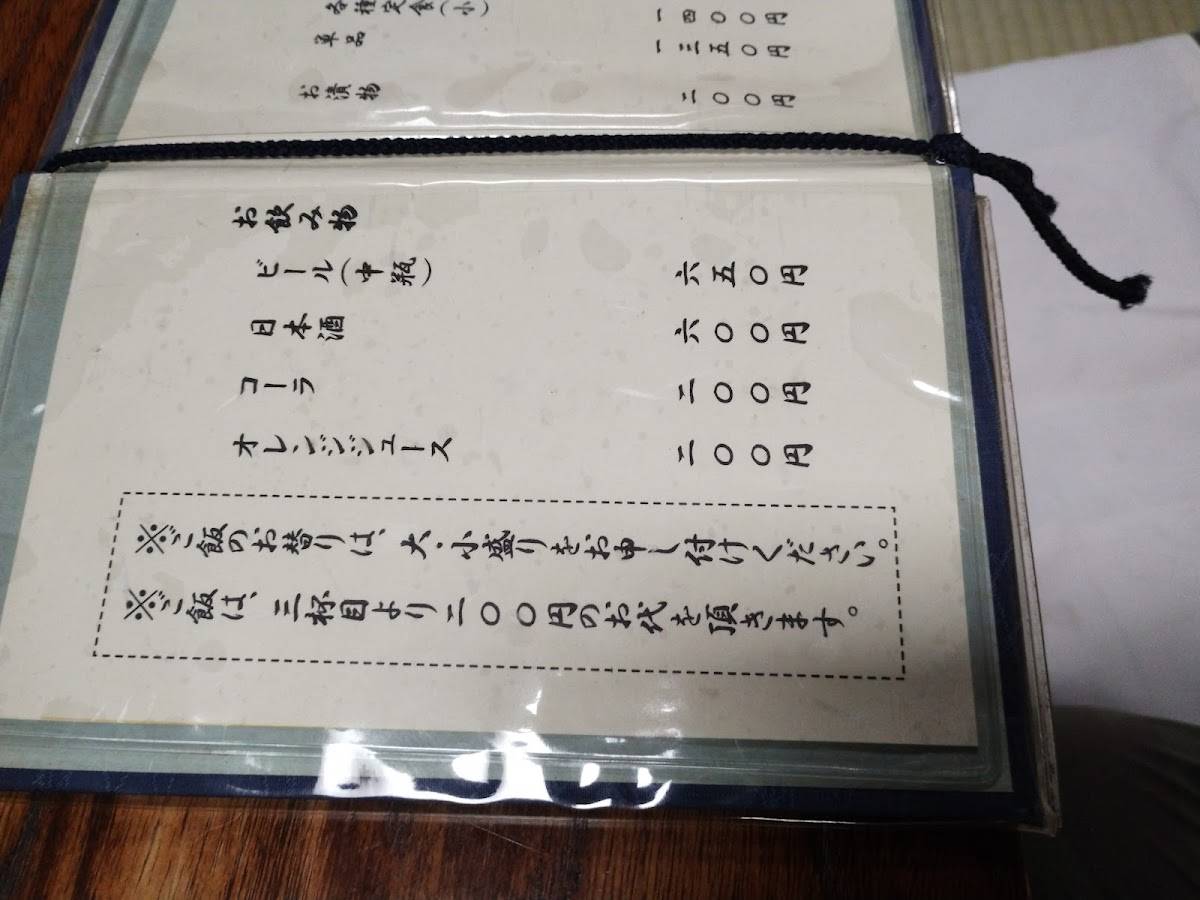 各種定食(小) 一四〇〇円
単品 一三五〇円
お漬物 二〇〇円
お飲み物
ビール(中瓶) 六五〇円
日本酒 六〇〇円
コーラ 二〇〇円
オレンジジュース 二〇〇円
※ご飯のお替りは、大・小盛りをお申し付けください。
※ご飯は、三杯目より二〇〇円のお代を頂きます。